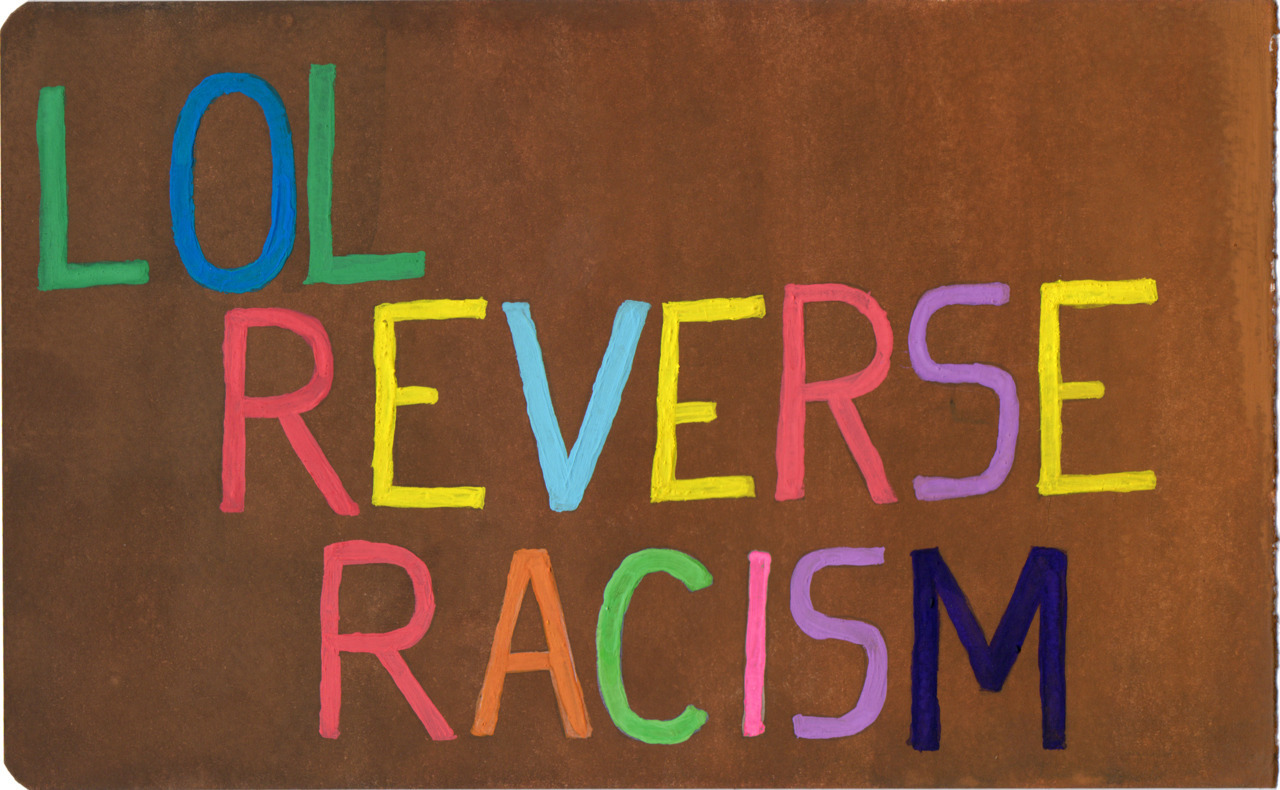 LOL
REVERSE
RACISM